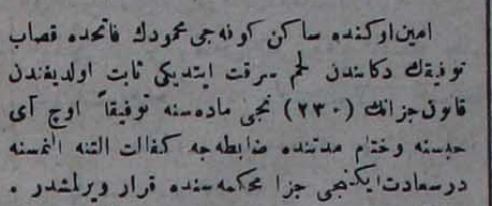 امین اوكنده ساكن كوفه جی محمودك فاتحده قصاب
توفیقك دكانندن لحم سرقت ایتدیكی ثابت اولدیغندن
قانون جزانك (٢٣٠) نجی مادەسنه توفیقاً اوچ آی
حبسنه وختام مدتنده ضابطه جه كفالت التنه النمسنه
درسعادت ایكنجی جزا محكمه سنده قرار ویرلمشدر .